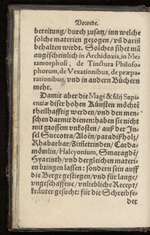 Vorrede.
bereitung/ durch zusatz/ inn welche
solche materien gezogen/ vñ darin
behalten wirdt. Solches sihet mã
augscheinlich in Archidoxis, in Me
tamorphosi, de Tinctura Philoso
phorum, de Vexationibus, de præpa
rationibus, vnd in andern Büchern
mehr.
Damit aber die Magi &
diser hohen Künsten möchten
theilhafftig werden/ vnd den men-
schen darmit dienen/ haben sie nicht
mit grossem vnkosten/ auß der In-
sel Succotra, Aloën/ paradißholtz/
Rhabarbar/ Bisletrinden/ Carda-
mömlin/ Halcyonium, Smaragdē/
Hyacinth/ vnd dergleichen materi-
en bringen lassen: sondern sein auff
die Berge gestiegen/ vnd sie lange/
vngeschaffene/ vnliebliche Recept/
kräuter gesucht/ für die Schreibfe-
der